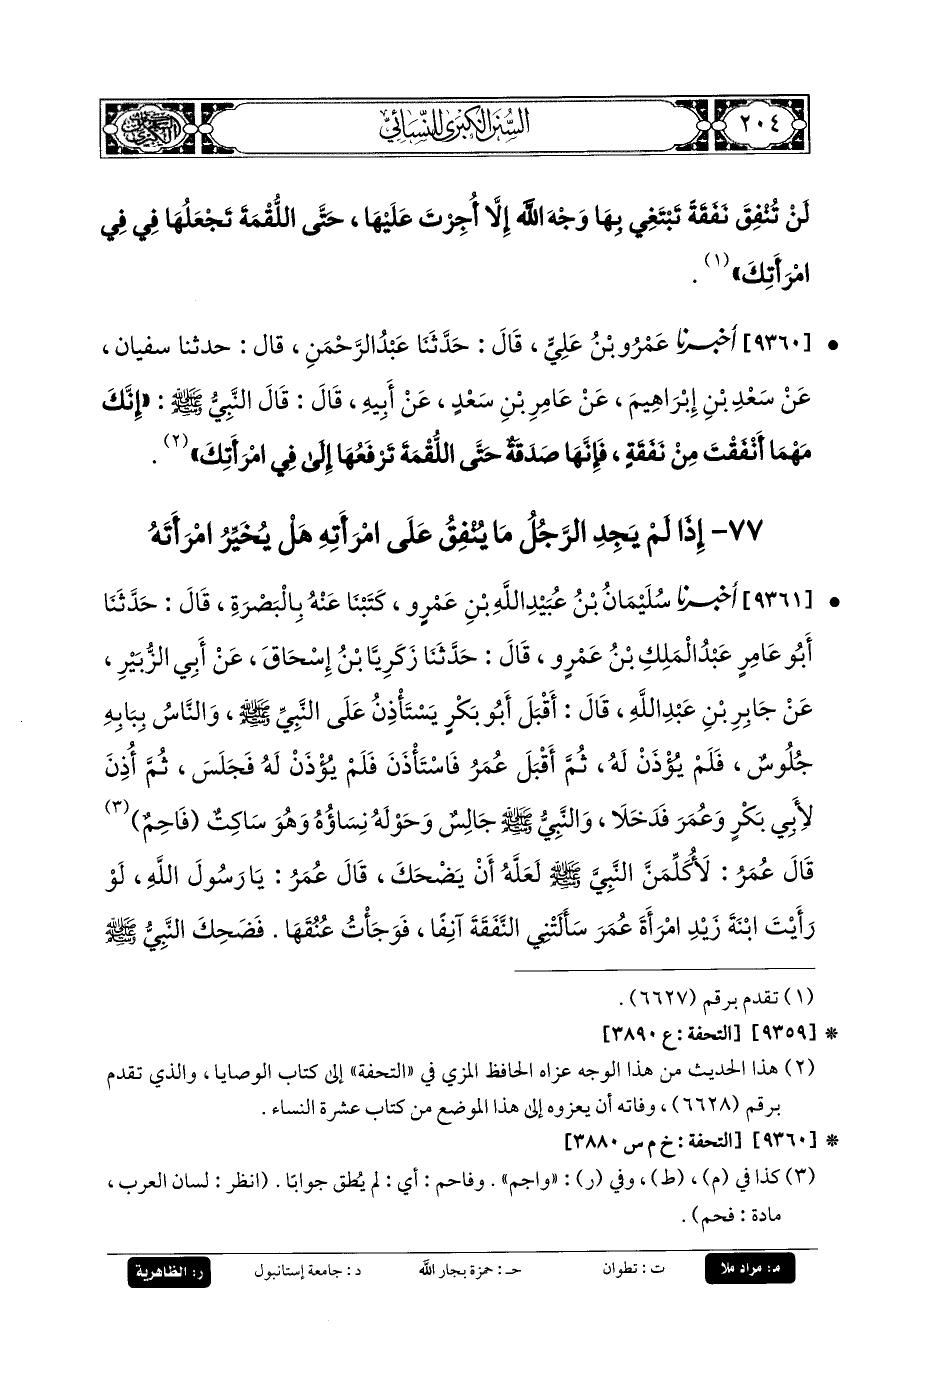 السنن الكبرى للنسائي ٢٠٤
لَنْ تُنْفِقَ نَفَقَةً تَبْتَغِي بِهَا وَجْهَ اللَّه إِلَّا أُجِرْتَ عَلَيْهَا، حَتَّى اللُّقْمَةَ تَجْعَلُهَا فِي فِي
امْرَأَتِكَ» (١).
• [٩٣٦٠] أخبرنا عَمْرُو بْنُ عَلِيٍّ، قَالَ: حَدَّثَنَا عَبْدُ الرَّحْمَنِ، قال: حدثنا سفيان،
عَنْ سَعْدِ بْنِ إِبْرَاهِيمَ، عَنْ عَامِرِ بْنِ سَعْدٍ، عَنْ أَبِيهِ، قَالَ: قَالَ النَّبِيُّ ﷺ: «إِنَّكَ
مَهْمَا أَنْفَقْتَ مِنْ نَفَقَةٍ، فَإِنَّهَا صَدَقَةٌ حَتَّى اللُّقْمَةَ تَرْفَعُهَا إِلَى فِي امْرَأَتِكَ» (٢).
٧٧- إِذَا لَمْ يَجِدِ الرَّجُلُ مَا يُنْفِقُ عَلَى امْرَأَتِهِ هَلْ يُخَيِّرُ امْرَأَتَهُ
• [٩٣٦١] أخبرنا سُلَيْمَانُ بْنُ عُبَيْدِ اللَّهِ بْنِ عَمْرٍو، كَتَبْنَا عَنْهُ بِالْبَصْرَةِ، قَالَ: حَدَّثَنَا
أَبُو عَامِرٍ عَبْدُ الْمَلِكِ بْنُ عَمْرٍو، قَالَ: حَدَّثَنَا زَكَرِيَّا بْنُ إِسْحَاقَ، عَنْ أَبِي الزُّبَيْرِ،
عَنْ جَابِرِ بْنِ عَبْدِ اللَّهِ، قَالَ: أَقْبَلَ أَبُو بَكْرٍ يَسْتَأْذِنُ عَلَى النَّبِيِّ ﷺ، وَالنَّاسُ بِبَابِهِ
جُلُوسٌ، فَلَمْ يُؤْذَنْ لَهُ، ثُمَّ أَقْبَلَ عُمَرُ فَاسْتَأْذَنَ فَلَمْ يُؤْذَنْ لَهُ فَجَلَسَ، ثُمَّ أُذِنَ
لِأَبِي بَكْرٍ وَعُمَرَ فَدَخَلَا، وَالنَّبِيُّ ﷺ جَالِسٌ وَحَوْلَهُ نِسَاؤُهُ وَهُوَ سَاكِتٌ (فَاحِمٌ) (٣)
قَالَ عُمَرُ: لَأُكَلِّمَنَّ النَّبِيَّ ﷺ لَعَلَّهُ أَنْ يَضْحَكَ، قَالَ عُمَرُ: يَا رَسُولَ اللَّهِ، لَوْ
رَأَيْتَ ابْنَةَ زَيْدٍ امْرَأَةَ عُمَرَ سَأَلَتْنِي النَّفَقَةَ آنِفًا، فَوَجَأْتُ عُنُقَهَا. فَضَحِكَ النَّبِيُّ ﷺ
(١) تقدم برقم (٦٦٢٧).
* [٩٣٥٩] [التحفة: ع ٣٨٩٠]
(٢) هذا الحديث من هذا الوجه عزاه الحافظ المزي في «التحفة» إلى كتاب الوصايا، والذي تقدم
برقم (٦٦٢٨)، وفاته أن يعزوه إلى هذا الموضع من كتاب عشرة النساء.
* [٩٣٦٠] [التحفة: خ م س ٣٨٨٠]
(٣) كذا في (م)، (ط)، وفي (ر): «واجم». وفاحم: أي: لم يُطق جوابًا. (انظر: لسان العرب،
مادة: فحم).
م: مراد ملا ت: تطوان حـ: حمزة بجار الله د: جامعة إستانبول ر: الظاهرية